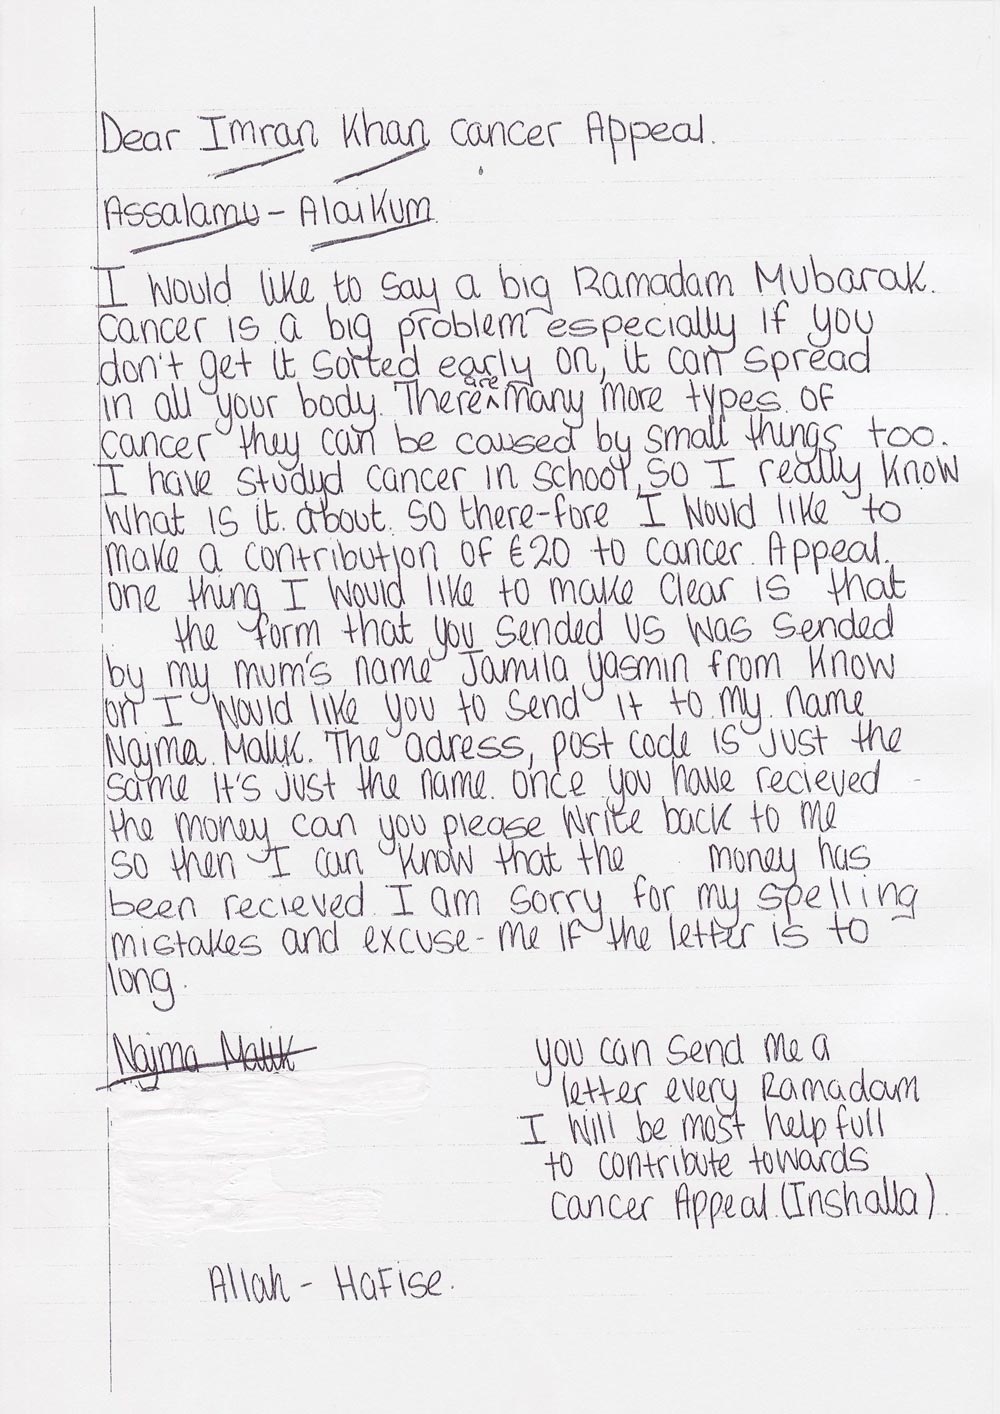 Dear Imran Khan cancer Appeal.
Assalamu - Alaikum
I would like to say a big Ramadam Mubarak.
cancer is a big problem especially if you
don't get it sorted early on, it can spread
in all your body. There are many more types of
cancer they can be caused by small things too.
I have studyd cancer in school, so I really know
what is it about. So there-fore I would like to
make a contribution of £20 to cancer Appeal.
one thing I would like to make clear is that
the form that you sended us was sended
by my mum's name Jamila yasmin from know
on I would like you to send it to my name
Najma Malik. The adress, post code is just the
same it's just the name. once you have recieved
the money can you please write back to me
so then I can know that the money has
been recieved. I am sorry for my spelling
mistakes and excuse-me if the letter is to
long.
Najma Malik
you can send me a
letter every Ramadam
I will be most help full
to contribute towards
cancer Appeal. (Inshalla).
Allah - Hafise.